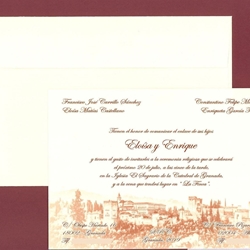 Francisco José Carrillo Sánchez
Eloísa Matías Castellano
Constantino Felipe M
Enriqueta García
Tienen el honor de comunicar el enlace de sus hijos
Eloísa y Enrique
y tienen el gusto de invitarles a la ceremonia religiosa que se celebrará
el próximo 20 de julio, a las cinco de la tarde,
en la Iglesia "El Sagrario" de la Catedral de Granada,
y a la cena que tendrá lugar en "La Finca".
Granada